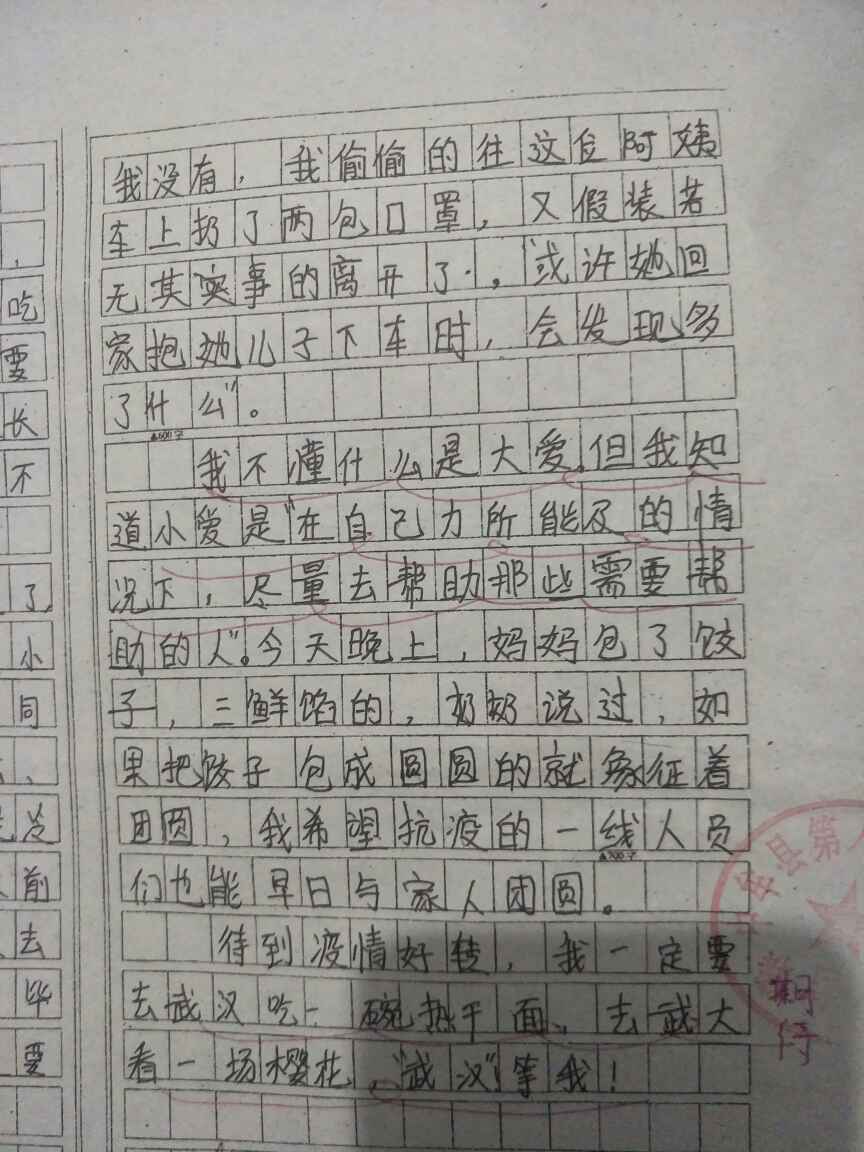 我没有，我偷偷的往这位阿姨
车上扔了两包口罩，又假装若
无其实事的离开了，"或许她回
家抱她儿子下车时，会发现多
了什么"。
我不懂什么是大爱，但我知
道小爱是"在自己力所能及的情
况下，尽量去帮助那些需要帮
助的人"。今天晚上，妈妈包了饺
子，三鲜馅的，奶奶说过，如
果把饺子包成圆圆的就象征着
团圆，我希望抗疫的一线人员
们也能早日与家人团圆。
待到疫情好转，我一定要
去武汉吃一碗热干面、去武大
看一场樱花，"武汉"等我！
期待
吃
要
长
不
了
小
同
前
去
毕
要
县第